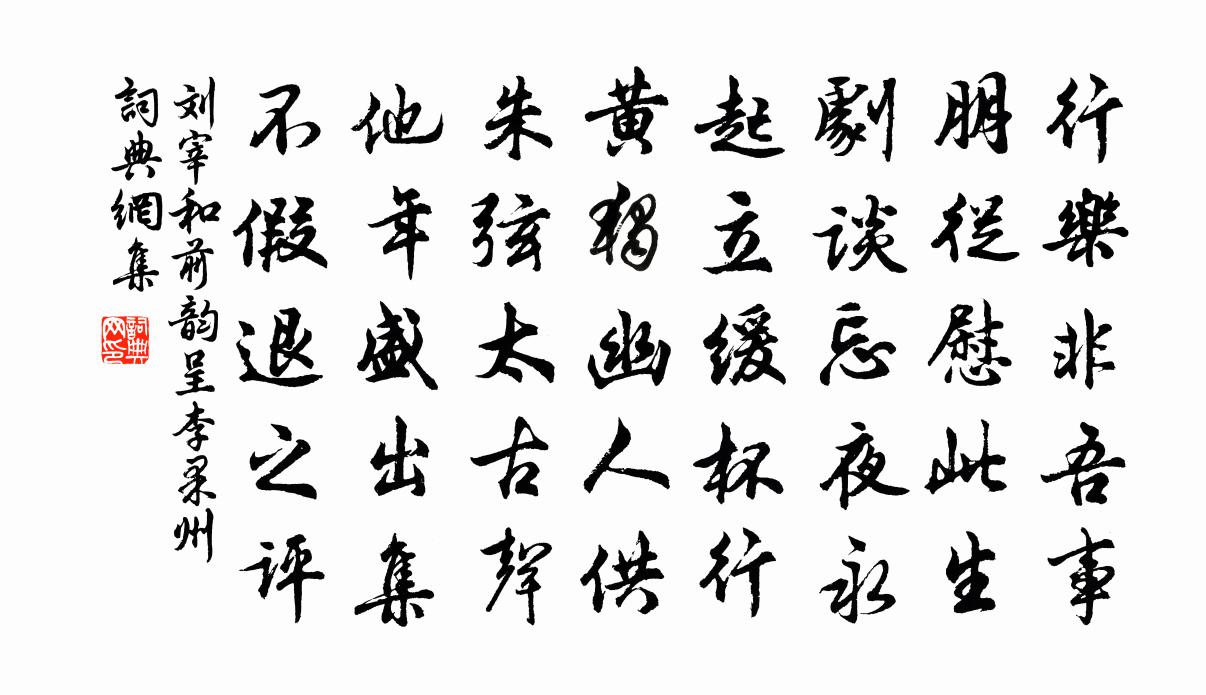 行樂非吾事
朋從慰此生
劇談忘夜永
起立緩杯行
黄獨幽人供
朱弦太古聲
他年盛出集
不假退之評
刘宰和前韵呈李果州
詞典網集
詞典网印